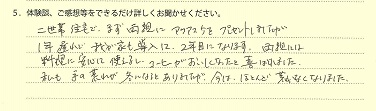 5. 体験談、ご感想等をできるだけ詳しくお聞かせください。
二世帯住宅で、まず両親にアクアスをプレゼントしましたが
1年遅れで我が家も導入して、2年目になります。両親には
料理に安心して使えるしコーヒーがおいしくなったと喜ばれました。
私も手の荒れが冬になるとありましたが、今は、ほとんど荒れなくなりました。